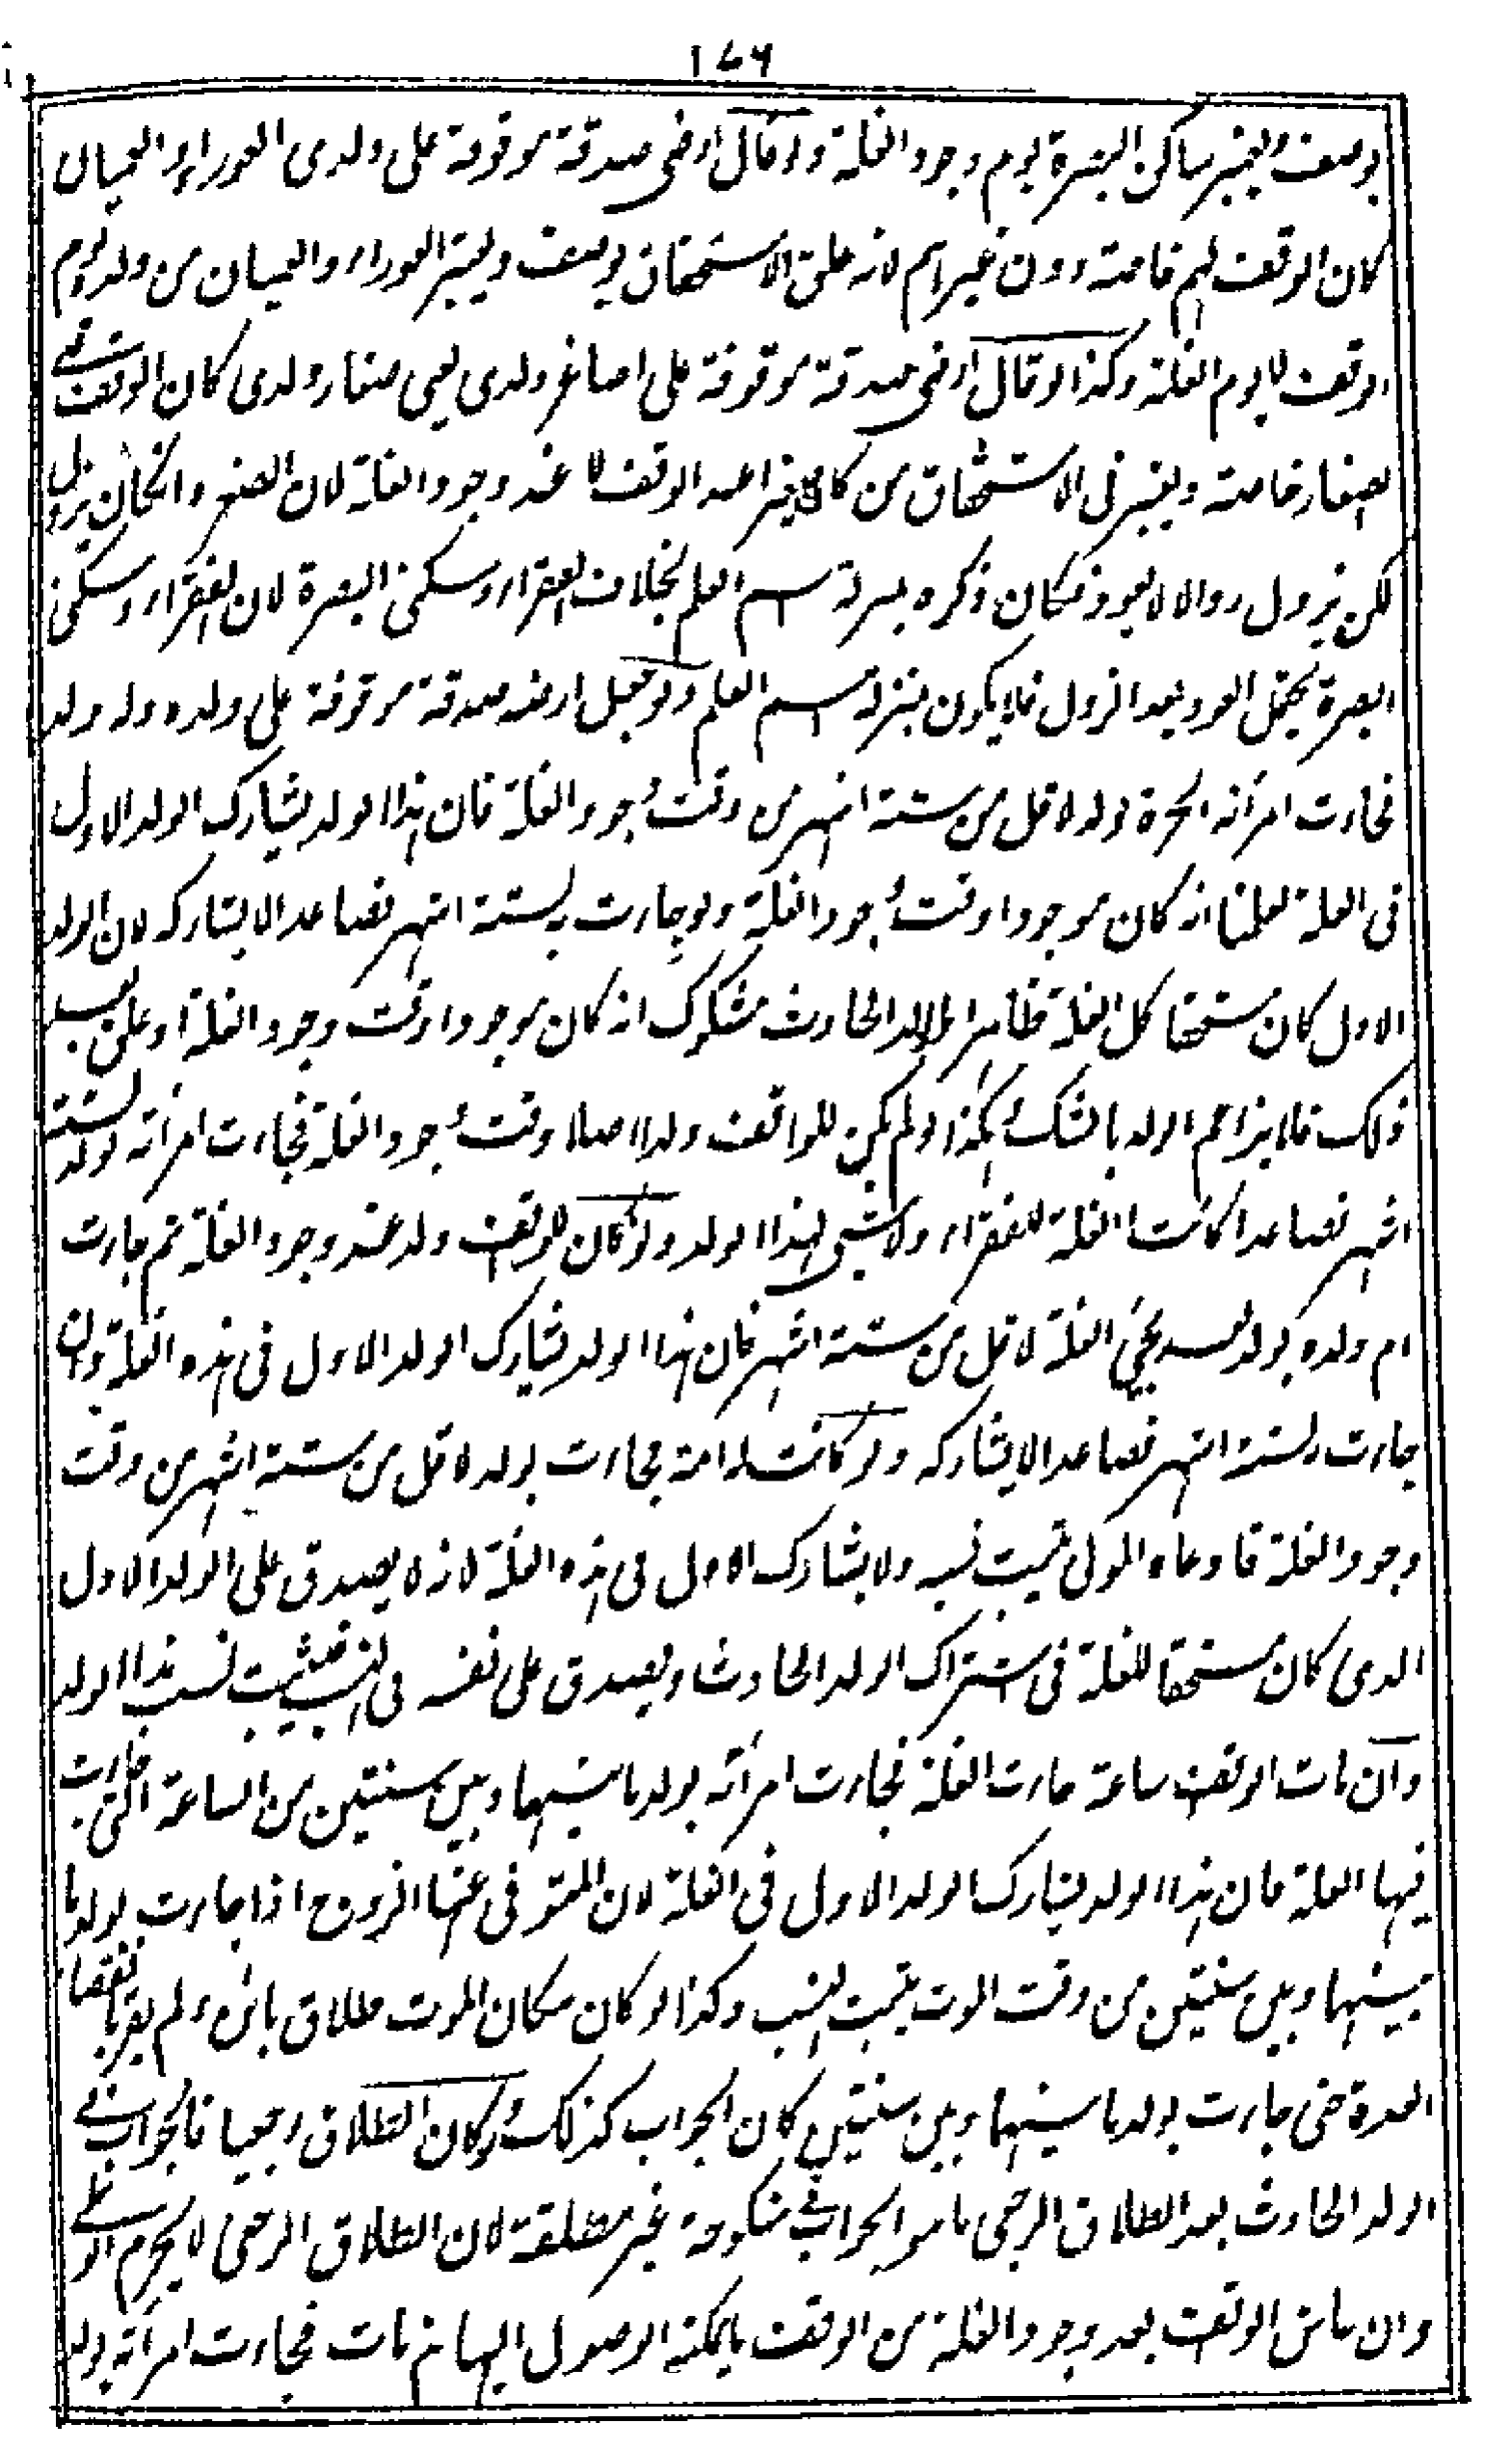 ١٧٦
بوصف ويعتبر ساكن البصرة يوم وجود الغلة ولو قال ارضى صدقة موقوفة على ولدى العوراء والعميان
كان الوقف لهم خاصة دون غيرهم لانه علق الاستحقاق بوصف ويعتبر العوراء والعميان من ولده يوم
الوقف لا يوم الغلة وكذا لو قال ارضى صدقة موقوفة على اصاغر ولدى يعنى صغار ولدى كان الوقف فى
الصغار خاصة ويعتبر فى الاستحقاق من كان صغيرا عند الوقف لا عند وجود الغلة لان الصغر وانكان يزول
لكن يزول زوالا لا يعود فكان ذكره بمنزلة اسم العلم بخلاف الفقراء وسكنى البصرة لان الفقراء وسكنى
البصرة يحتمل العود بعد الزول فلا يكون بمنزلة اسم العلم ولو جعل ارضه صدقة موقوفة على ولده وله ولد
فجاءت امرأته الحرة بولد لاقل من ستة اشهر من وقت وجود الغلة فان هذا الولد يشارك الولد الاول
فى الغلة لعلمنا انه كان موجودا وقت وجود الغلة ولو جاءت به لستة اشهر فصاعدا لا يشاركه لان الولد
الاول كان مستحقا كل الغلة ظاهرا والولد الحادث مشكوك انه كان موجودا وقت وجود الغلة او علق بعد
ذلك فلا يزاحم الولد بالشك وكذا لو لم يكن للواقف ولدا اصلا وقت وجود الغلة فجاءت امرأته بولد لستة
اشهر فصاعدا كانت الغلة للفقراء ولا شئ لهذا الولد ولو كان للواقف ولد عند وجود الغلة ثم جاءت
ام ولده بولد بعد مجئ الغلة لاقل من ستة اشهر فان هذا الولد يشارك الولد الاول فى هذه الغلة وان
جاءت لستة اشهر فصاعدا لا يشاركه ولو كانت له امة فجاءت بولد لاقل من ستة اشهر من وقت
وجود الغلة فادعاه المولى يثبت نسبه ولا يشارك الاول فى هذه الغلة لانه لا يصدق على الولد الاول
الذى كان مستحقا للغلة فى اشتراك الولد الحادث ويصدق على نفسه فى النسب فيثبت نسب هذا الولد
وان مات الواقف ساعة جاءت الغلة فجاءت امرأته بولد ما بينها وبين سنتين من الساعة التى جاءت
فيها الغلة فان هذا الولد يشارك الولد الاول فى الغلة لان المتوفى عنها الزوج اذا جاءت بولد ما
بينها وبين سنتين من وقت الموت يثبت النسب وكذا لو كان مكان الموت طلاق بائن ولم يقر بانقضاء
العدة حتى جاءت بولد ما بينها وبين سنتين كان الجواب كذلك ولو كان الطلاق رجعيا فالجواب فى
الولد الحادث بعد الطلاق الرجعى ما هو الجواب فى منكوحة غير مطلقة لان الطلاق الرجعى لا يحرم الوطى
وان عاش الواقف بعد وجود الغلة من الوقت ما يمكنه الوصول اليها ثم مات فجاءت امرأته بولد